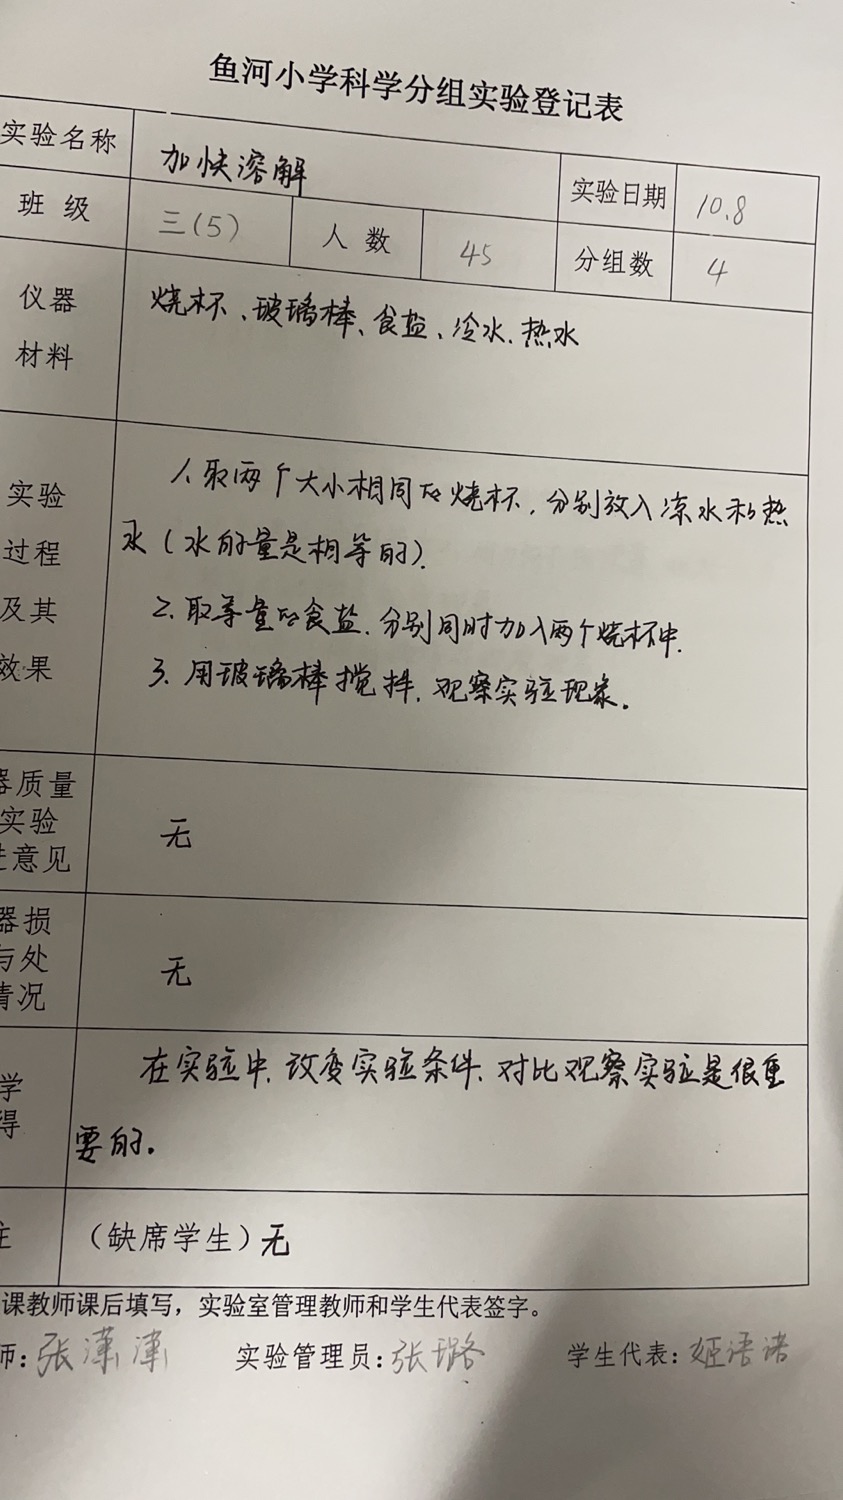 鱼河小学科学分组实验登记表
实验名称 加快溶解 实验日期 10.8
班 级 三(5) 人 数 45 分组数 4
仪器
材料
烧杯、玻璃棒、食盐、冷水、热水
实验
过程
及其
效果
1、取两个大小相同的烧杯，分别放入凉水和热
水(水的量是相等的).
2、取等量的食盐、分别同时加入两个烧杯中.
3、用玻璃棒搅拌，观察实验现象。
器质量
实验
意见
无
器损
与处
情况
无
学
得
在实验中，改变实验条件、对比观察实验是很重
要的。
注 （缺席学生）无
课教师课后填写，实验室管理教师和学生代表签字。
师：张潇潇 实验管理员：张璐 学生代表：姬语诺